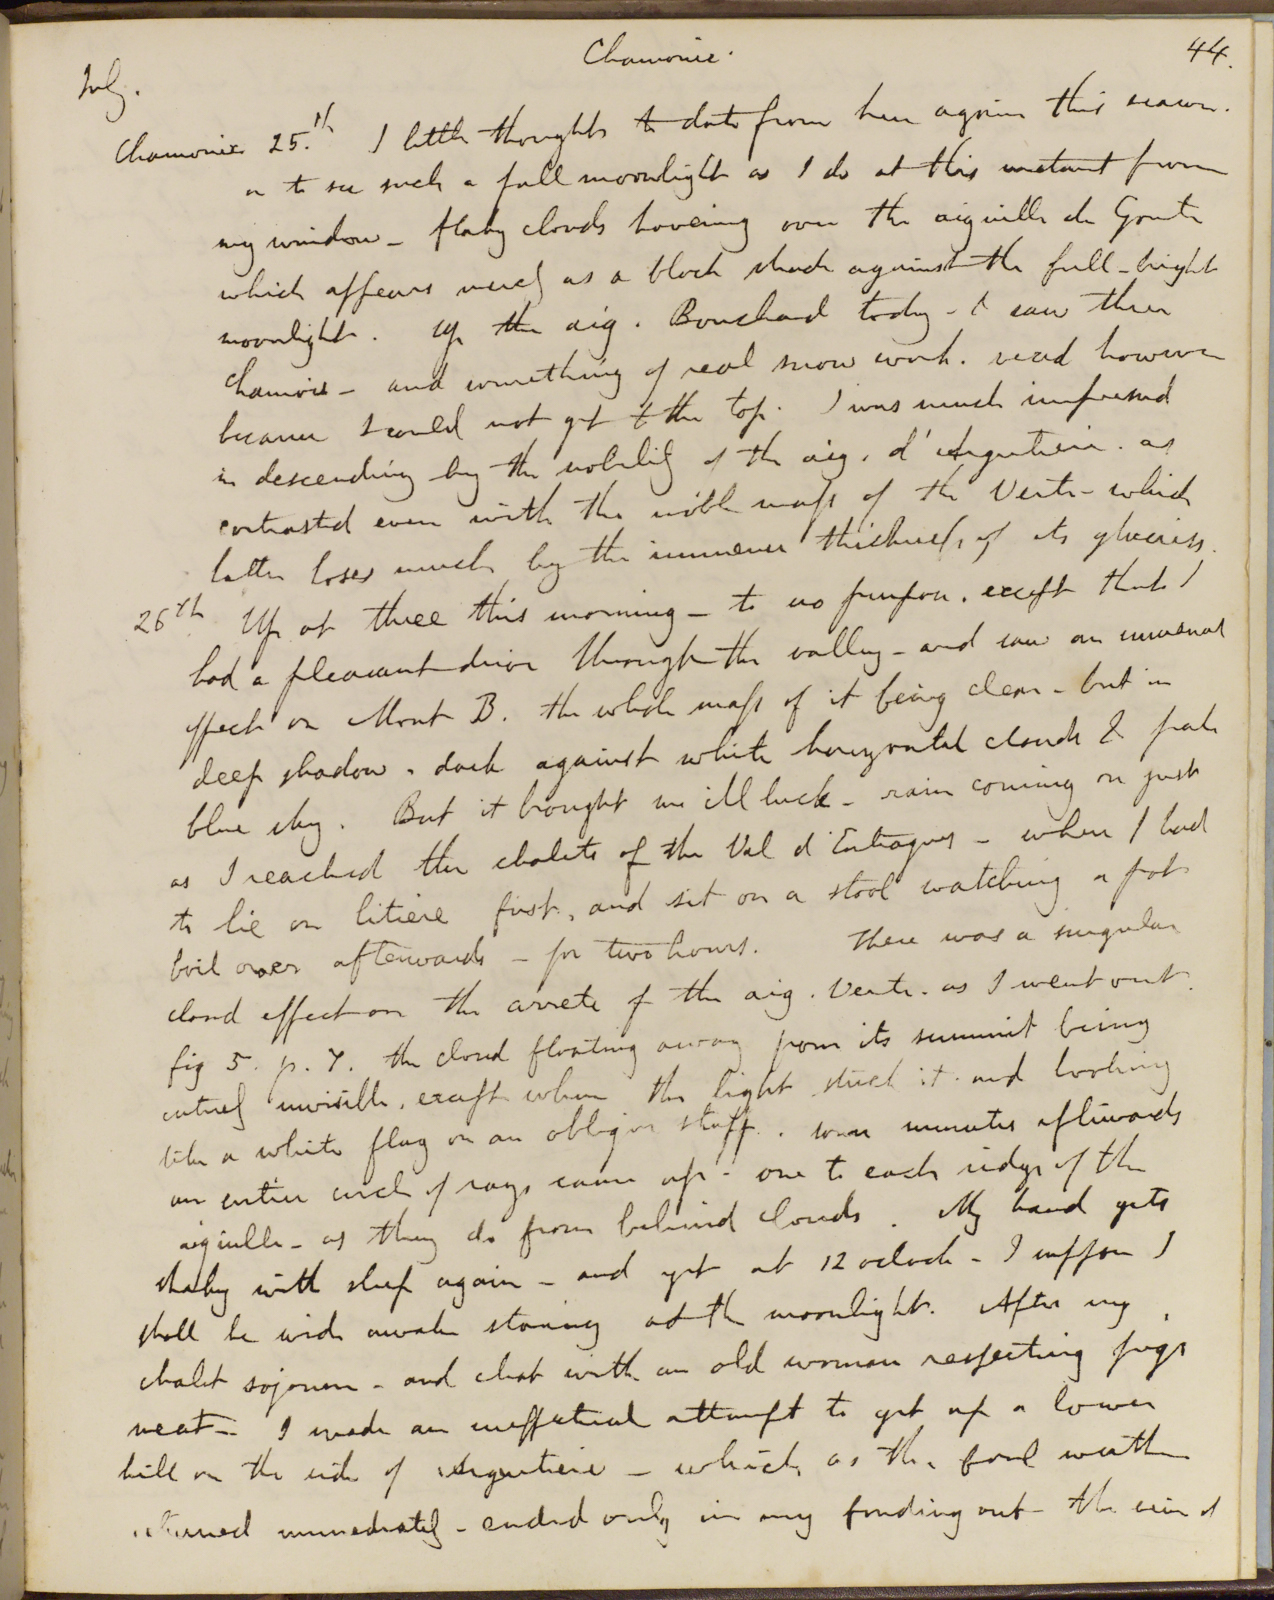 Chamonix.
44.
July.
Chamonix 25.th I little thought to date from here again this season.
or to see such a full moonlight as I do at this instant from
my window - flaky clouds hovering over the aiguille de Goute
which appears merely as a black shade against the full-bright
moonlight. Up the aig. Bouchard today - I saw three
Chamois - and something of real snow work. vexed however
because I could not get to the top. I was much impressed
in descending by the nobility of the aig. d'Argentiere. as
contrasted even with the noble mass of the Verte - which
latter loses much by the immense thickness of its glaciers.
26th Up at three this morning - to no purpose. except that I
had a pleasant drive through the valley - and saw an unusual
effect on Mont B. the whole mass of it being clear - but in
deep shadow. dark against white horizontal clouds & pale
blue sky. But it brought me ill luck - rain coming on just
as I reached the chalets of the Val d'Entragues - where I had
to lie on litiere first, and sit on a stool watching a pot
boil over afterwards - for two hours. There was a singular
cloud effect on the arrete of the aig. Verte. as I went out.
fig 5. p. 7. the cloud floating away from its summit being
entirely invisible. except where the light struck it. and looking
like a white flag on an oblique staff. some minutes afterwards
an entire circle of rays came up - one to each ridge of the
aiguille - as they do from behind clouds. My hand gets
shaky with sleep again - and yet at 12 oclock - I suppose I
shall be wide awake staring at the moonlight. After my
chalet sojourn - and chat with an old woman respecting pigs
meat - I made an ineffectual attempt to get up a lower
hill on the side of Argentiere - which, as the foul weather
returned immediately - ended only in my finding out - the